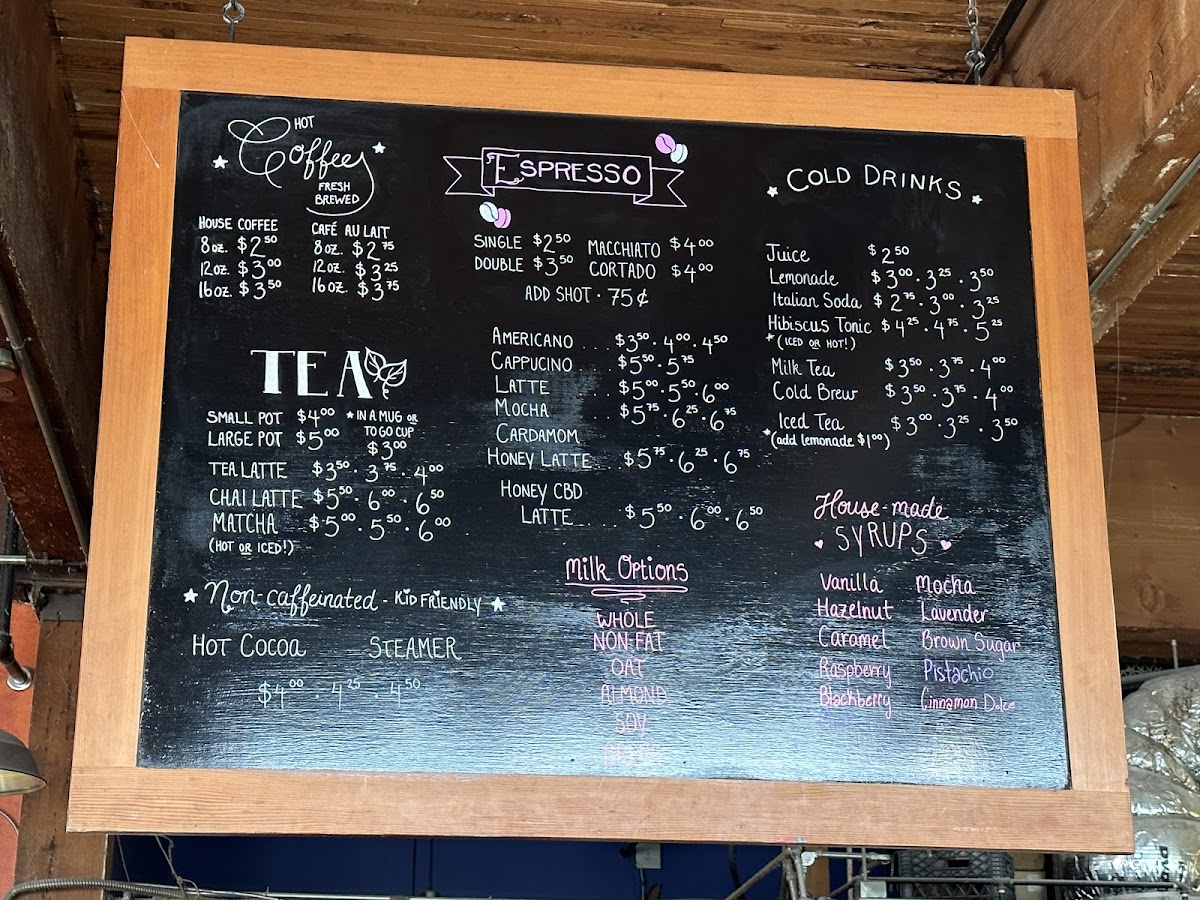 HOT
Coffee
FRESH
BREWED
HOUSE COFFEE
8 oz. $2.50
12 oz. $3.00
16 oz. $3.50
CAFÉ AU LAIT
8 oz. $2.75
12 oz. $3.25
16 oz. $3.75
TEA
SMALL POT $4.00
LARGE POT $5.00
*IN A MUG OR
TO GO CUP
$3.00
TEA LATTE $3.50 · 3.75 · 4.00
CHAI LATTE $5.50 · 6.00 · 6.50
MATCHA $5.00 · 5.50 · 6.00
(HOT OR ICED!)
Non-caffeinated - KID FRIENDLY
HOT COCOA STEAMER
$4.00 · 4.25 · 4.50
ESPRESSO
SINGLE $2.50 MACCHIATO $4.00
DOUBLE $3.50 CORTADO $4.00
ADD SHOT · 75¢
AMERICANO .. $3.50 · 4.00 · 4.50
CAPPUCINO .... $5.50 · 5.75
LATTE $5.00 · 5.50 · 6.00
MOCHA $5.75 · 6.25 · 6.75
CARDAMOM
HONEY LATTE .. $5.75 · 6.25 · 6.75
HONEY CBD
LATTE .... $5.50 · 6.00 · 6.50
Milk Options
WHOLE
NON-FAT
OAT
ALMOND
SOY
COLD DRINKS
Juice $2.50
Lemonade $3.00 · 3.25 · 3.50
Italian Soda $2.75 · 3.00 · 3.25
Hibiscus Tonic $4.25 · 4.75 · 5.25
*(ICED OR HOT!)
Milk Tea $3.50 · 3.75 · 4.00
Cold Brew $3.50 · 3.75 · 4.00
Iced Tea $3.00 · 3.25 · 3.50
*(add lemonade $1.00)
House-made
SYRUPS
Vanilla Mocha
Hazelnut Lavender
Caramel Brown Sugar
Raspberry Pistachio
Blackberry Cinnamon Dolce